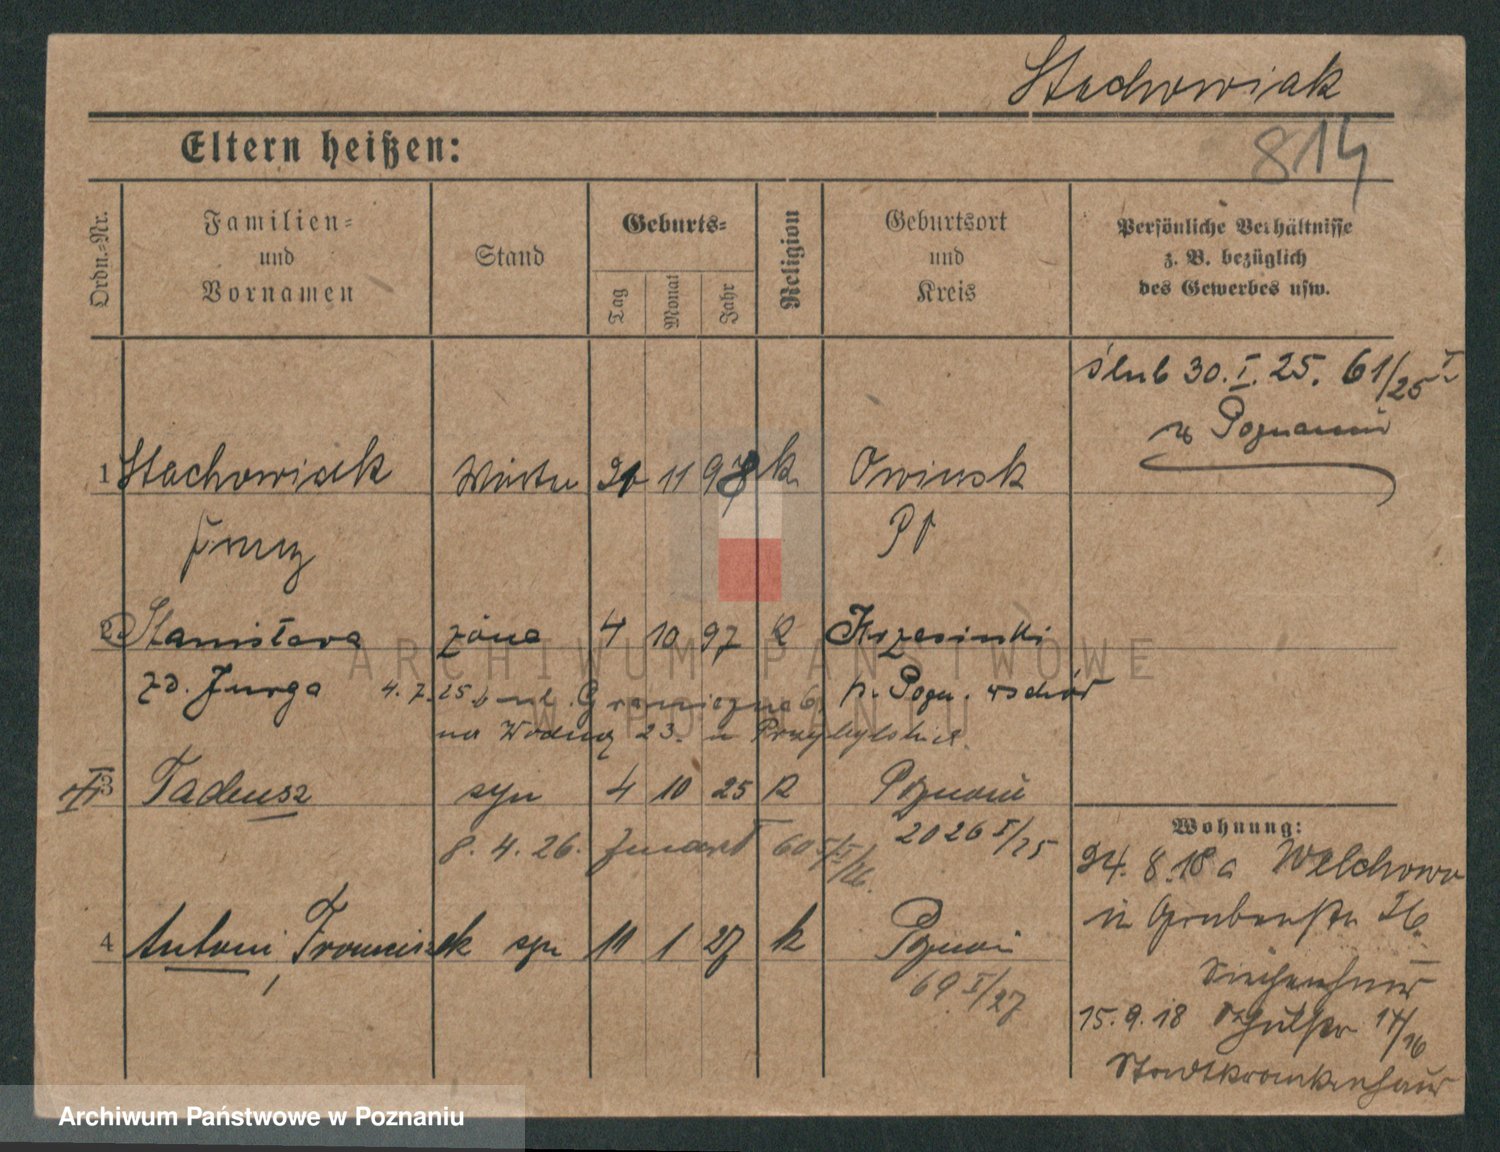 Stachowiak
814
Eltern heißen:
Ordn.-Nr.
Familien=
und
Vornamen
Stand
Geburts=
Tag
Monat
Jahr
Religion
Geburtsort
und
Kreis
Persönliche Verhältnisse
z. B. bezüglich
des Gewerbes usw.
ślub 30. I. 25. 61/25 I
w Poznaniu
1 Stachowiak 11 k Owinsk
2 Stanisława żona 4 10 97 Krzesinki
zd. Jurga 4. 7. 25 ul. Graniczna 6 p. Pozn. wschód
na Wodną 23. u Przybylskich.
3 Tadeusz syn 4 10 25 Poznań
8. 4. 26. 2026 I/25
4 Antoni, Franciszek syn 11 1 27 k Poznań
69 I/27
Wohnung:
24. 8. 18 a Welchowo
in Grabenstr 26.
Siechenhaus
15. 9. 18 Schulstr 14/16
Stadtkrankenhaus
ARCHIWUM PAŃSTWOWE
W POZNANIU
Archiwum Państwowe w Poznaniu